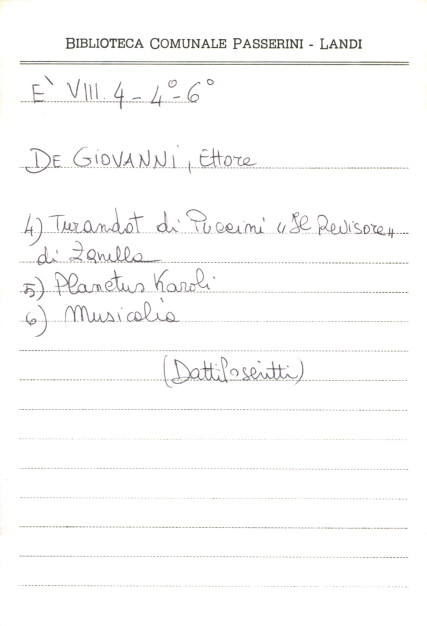 BIBLIOTECA COMUNALE PASSERINI - LANDI
E` VIII 4 - 4° - 6°
DE GIOVANNI, Ettore
4) Turandot di Puccini "Il Revisore"
di Zanella
5) Planctus Karoli
6) Musicalia
(Dattiloscritti)